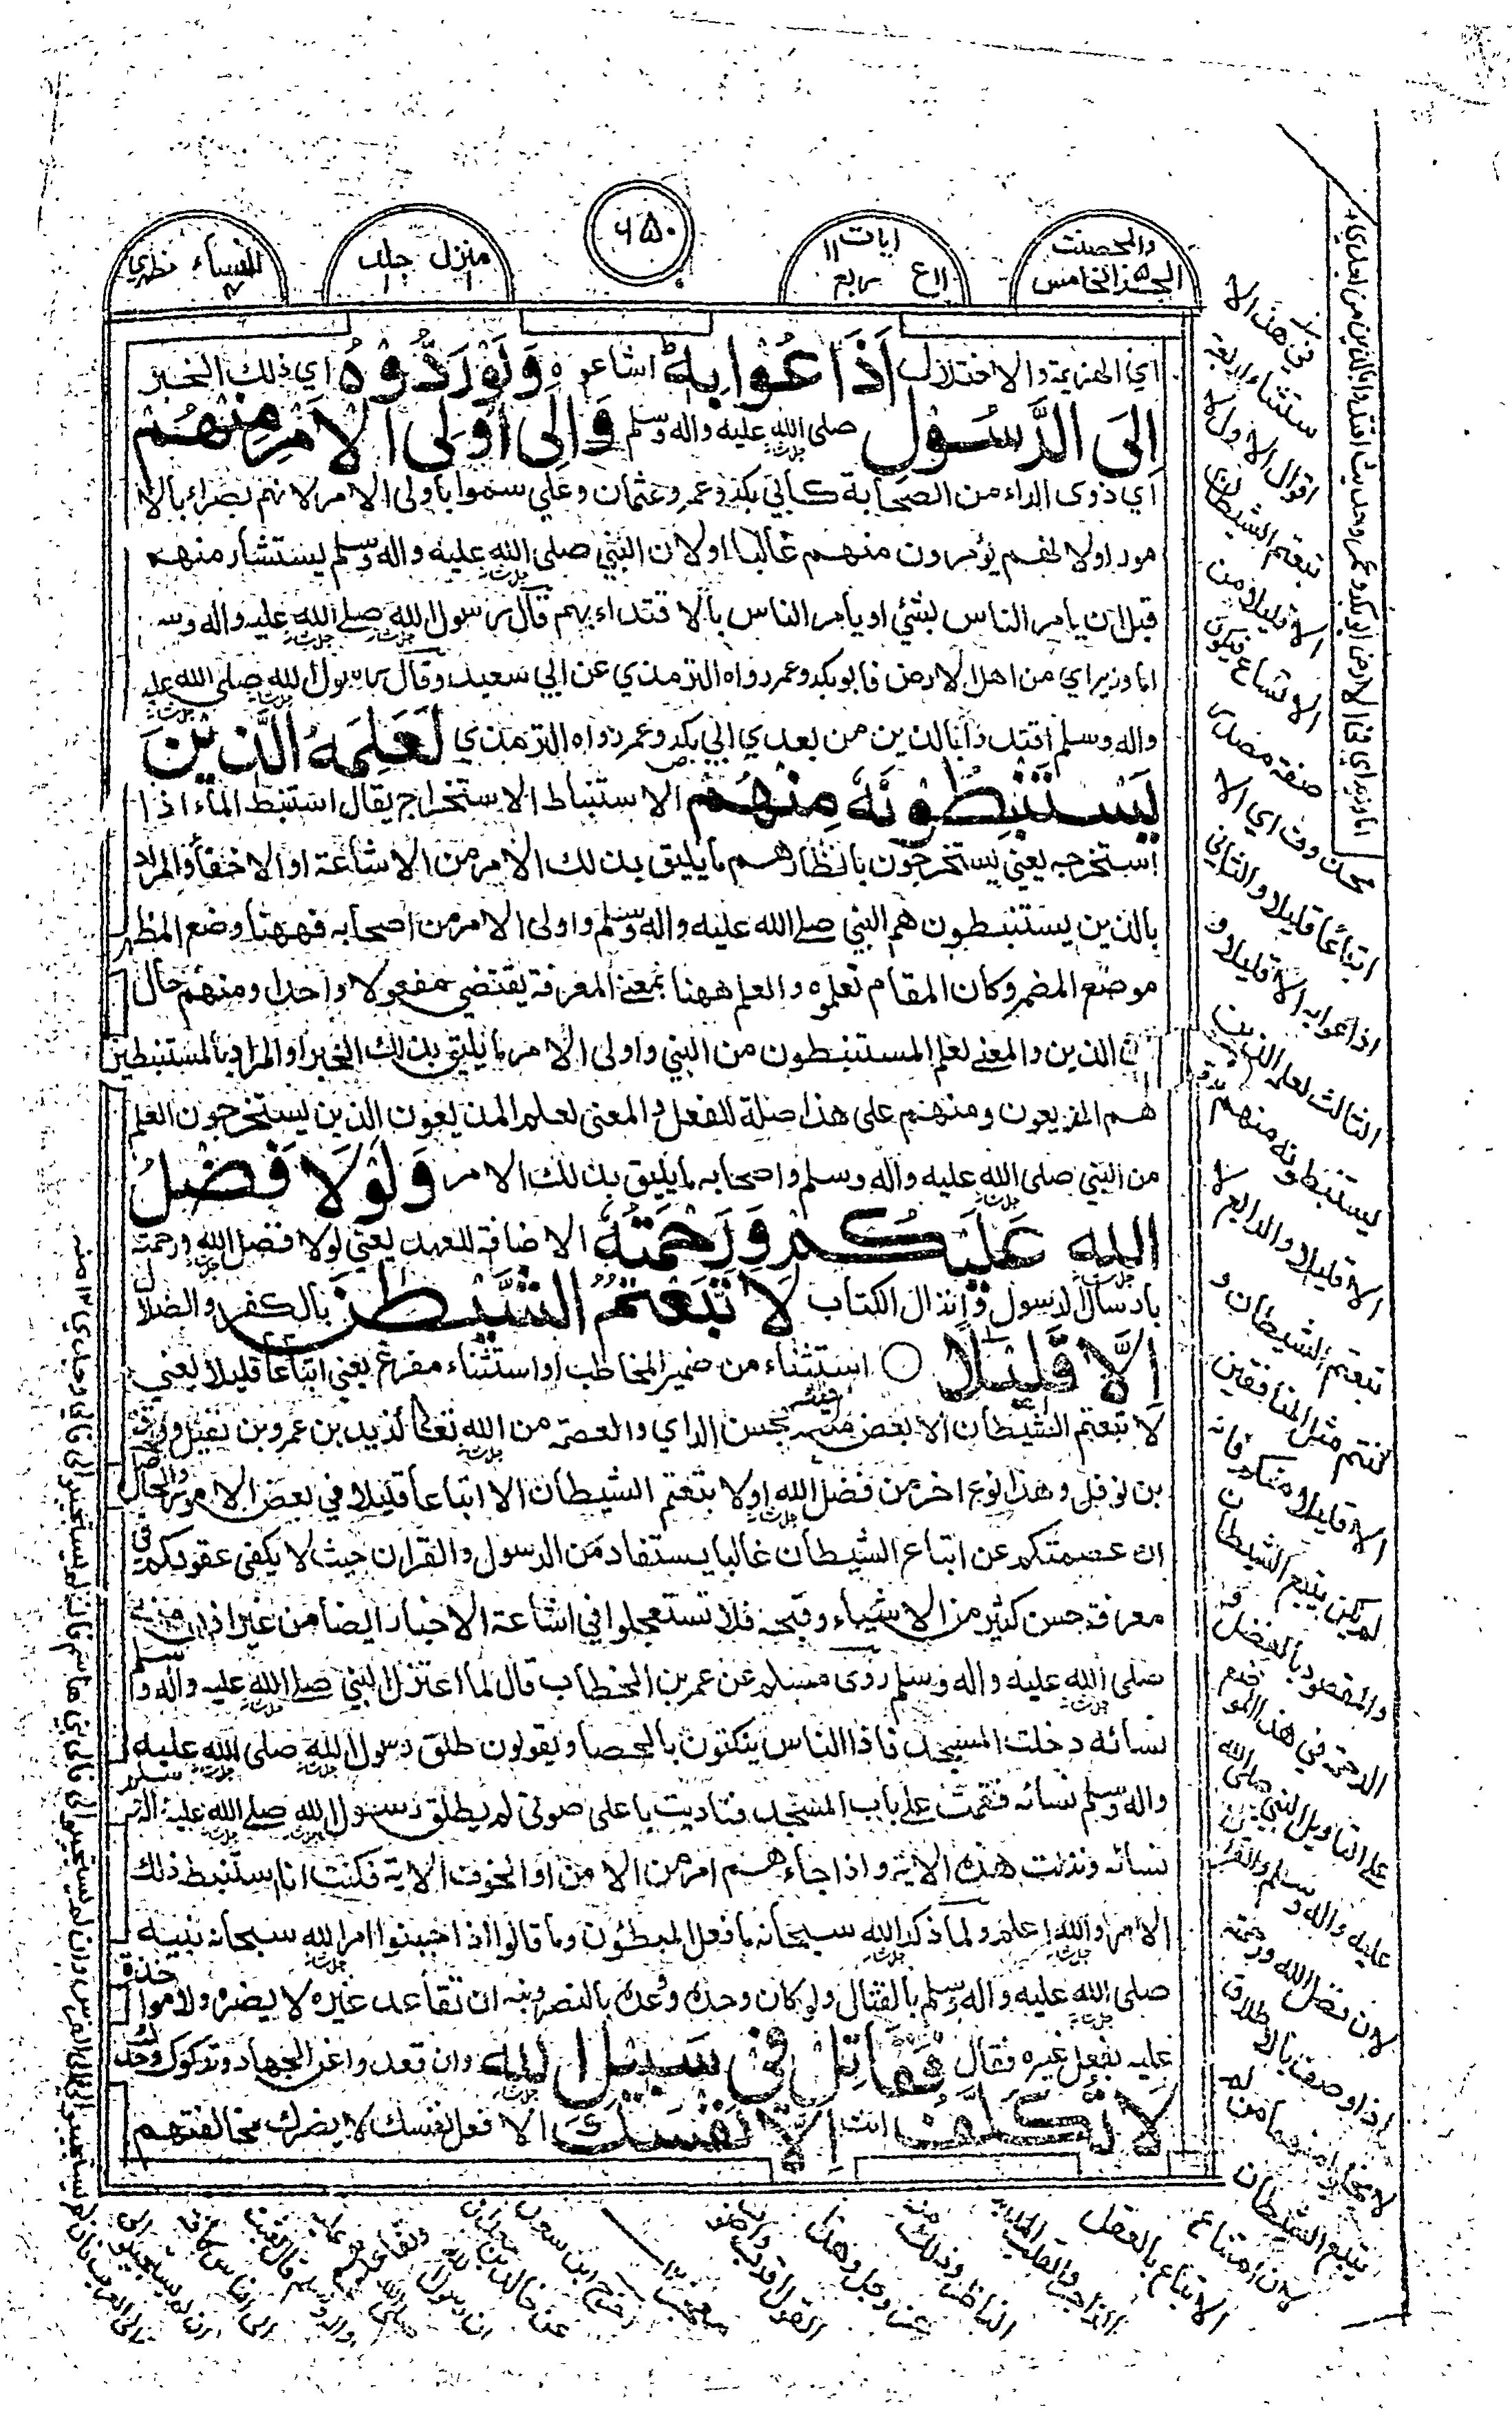 والمحصنت
الجزء الخامس
ايات ١١
ربع
٦٥٠
منزل جلد
النساء مظهري
اي الهزيمة والاختلال اَذَاعُوْا بِهٖ اشاعوه وَلَوْ رَدُّوْهُ اي ذلك الخبر
اِلَى الرَّسُوْلِ صلى الله عليه واله وسلم وَاِلٰى اُولِى الْاَمْرِ مِنْهُمْ
اي ذوى الراء من الصحابة كأبي بكر وعمر وعثمان وعلي سموا بأولى الامر لانهم بصراء بالا
مور اولا لهم يؤمرون منهم غالبا اولان النبي صلى الله عليه واله وسلم يستشار منهم
قبل ان يامر الناس بشئي او يأمر الناس بالاقتداء بهم قال رسول الله صلى الله عليه واله وس
اما وزيراي من اهل الارض فابوبكر وعمر رواه الترمذي عن ابي سعيد وقال رسول الله صلى الله عليه
واله وسلم اقتدوا بالذين من بعدي ابي بكر وعمر رواه الترمذي لَعَلِمَهُ الَّذِيْنَ
يَسْتَنْبِطُوْنَهٗ مِنْهُمْ الاستنباط الاستخراج يقال استنبط الماء اذا
استخرجه يعني يستخرجون بانظارهم ما يليق بذلك الامر من الاشاعة او الاخفاء والمراد
بالذين يستنبطون هم النبي صلى الله عليه واله وسلم واولى الامر من اصحابه فههنا وضع المظهر
موضع المضمر وكان المقام تعلموه والعلم ههنا بمعنى المعرفة يقتضي مفعولا واحدا ومنهم حال
الذين والمعنى لعلم المستنبطون من النبي واولى الامر ما يليق بذلك الخبر او المراد بالمستنبطين
هم المذيعون ومنهم على هذا صلة للفعل والمعنى لعلم المذيعون الذين يستخرجون العلم
من النبي صلى الله عليه واله وسلم واصحابه ما يليق بذلك الامر وَلَوْلَا فَضْلُ
اللّٰهِ عَلَيْكُمْ وَرَحْمَتُهٗ الاضافة للعهد يعني لولا فضل الله ورحمته
بارسال الرسول وانزال الكتاب لَاتَّبَعْتُمُ الشَّيْطٰنَ بالكفر والضلال
اِلَّا قَلِيْلًا ○ استثناء من ضمير المخاطب او استثناء مفرغ يعني اتباعا قليلا يعني
لاتبعتم الشيطان الا بعض منكم بحسن الراي والعصمة من الله تعالى كزيد بن عمرو بن نفيل وورقة
بن نوفل وهذا نوع اخر من فضل الله اولاتبعتم الشيطان الا اتباعا قليلا في بعض الامور والحاصل
ان عصمتكم عن اتباع الشيطان غالبا يستفاد من الرسول والقران حيث لا يكفي عقولكم في
معرفة حسن كثير من الاشياء وقبحه فلا تستعجلوا في اشاعة الاخبار ايضا من غير اذن من النبي
صلى الله عليه واله وسلم روى مسلم عن عمر بن الخطاب قال لما اعتزل النبي صلى الله عليه واله وسلم
نسائه دخلت المسجد فاذا الناس ينكتون بالحصا ويقولون طلق رسول الله صلى الله عليه
واله وسلم نسائه فقمت على باب المسجد فناديت باعلى صوتى لم يطلق رسول الله صلى الله عليه واله وسلم
نسائه ونزلت هذه الاية واذا جاءهم امر من الامن او الخوف الاية فكنت انا استنبط ذلك
الامر والله اعلم ولما ذكر الله سبحانه ما فعل المبطؤن وما قالوا اذا خيبتوا امر الله سبحانه نبيه
صلى الله عليه واله وسلم بالقتال ولو كان وحده وعده بالنصر ونبه ان تقاعد غيره لا يضره ولا مواخذة
عليه بفعل غيره فقال فَقَاتِلْ فِيْ سَبِيْلِ اللّٰهِ وان قعدوا عن الجهاد وتركوك وحدك
لَا تُكَلَّفُ انت اِلَّا نَفْسَكَ الا فعل نفسك لا يضرك مخالفتهم
في هذا الا
ستثناء اربعة
اقوال الاول لا
تبعتم الشيطان
الا قليلا من
الاتباع فيكون
صفة مصدر
محذوف اي الا
اتباعا قليلا والثاني
اذاعوا به الا قليلا و
الثالث لعلمه الذين
يستنبطونه منهم
الا قليلا والرابع لا
تبعتم الشيطان و
كنتم مثل المنافقين
الا قليلا منكم فانه
لم يكن يتبع الشيطان
والمقصود بالفضل و
الرحمة في هذا الموضع
على التاويل النبي صلى الله
عليه واله وسلم والقران
لان فضل الله ورحمته
اذا وصفت بالاطلاق
يتبع الشيطان
لان امتناع
الاتباع بالعقل